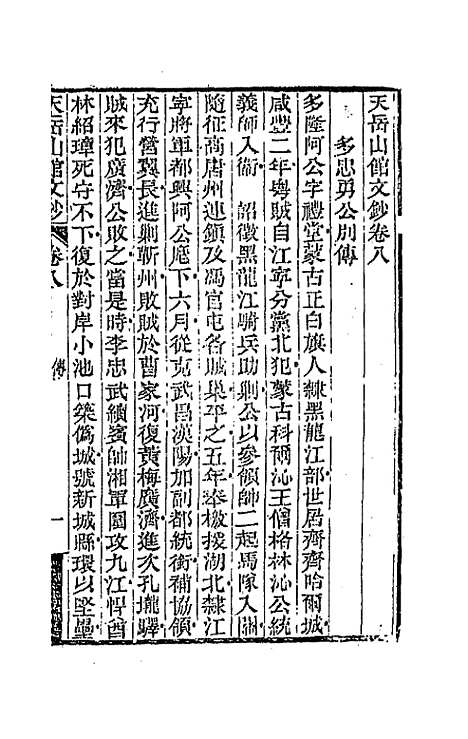 天岳山館文鈔卷八
多忠勇公別傳
多隆阿公字禮堂蒙古正白旗人隸黑龍江部世居齊齊哈爾城
咸豐二年粵賊自江寧分黨北犯蒙古科爾沁王僧格林沁公統
義師入衞 詔徵黑龍江騎兵助剿公以參領帥二起馬隊入關
隨征高唐州連鎮及馮官屯各賊巢平之五年奉檄援湖北隸江
寧將軍都興阿公麾下六月從克武昌漢陽加副都統銜補協領
充行營翼長進剿蘄州敗賊於曹家河復黃梅廣濟進次孔壠驛
賊來犯廣濟公敗之當是時李忠武續賓帥湘軍圍攻九江悍酋
林紹璋死守不下復於對岸小池口築僞城號新城縣環以堅壘
天岳山館文鈔 卷八 傳 一